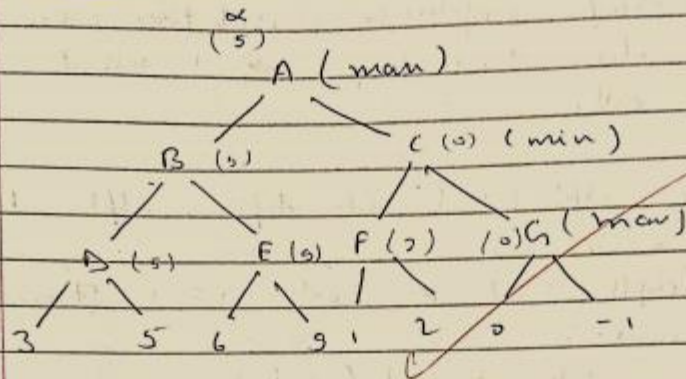 α
(5)
A (max)
B (5) C (0) (min)
D (5) E (9) F (2) (0) G (max)
3 5 6 9 1 2 0 -1